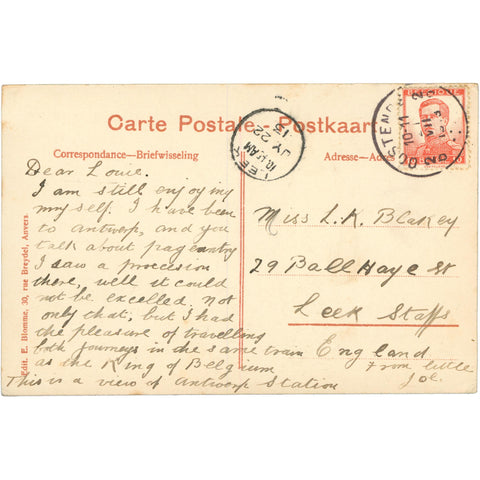 BELGIQUE
OOSTENDE
10-11
VII
LEEK
10.15 AM
JY 22
13
Carte Postale - Postkaart
Correspondance—Briefwisseling
Adresse—Adres
Dear Louie.
I am still enjoying
myself. I have been
to Antwerp, and you
talk about pageantry
I saw a procession
there, well it could
not be excelled. Not
only that, but I had
the pleasure of travelling
both journeys in the same train
as the King of Belgium
This is a view of Antwerp Station
Miss L. K. Blakey
29 Ball Haye St
Leek Staffs
England
From little
Joe.
Edit. E. Blomme, 30, rue Breydel, Anvers.